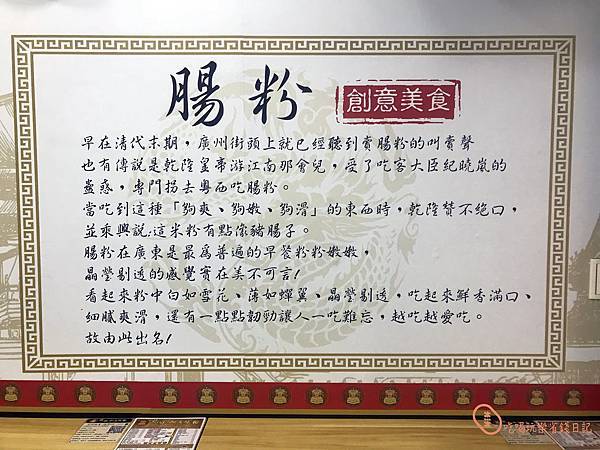 腸粉
創意美食
早在清代末期，廣州街頭上就已經聽到賣腸粉的叫賣聲
也有傳說是乾隆皇帝游江南那會兒，受了吃客大臣紀曉嵐的
蠱惑，專門拐去粵西吃腸粉。
當吃到這種「夠爽、夠嫩、夠滑」的東西時，乾隆贊不絕口，
並乘興說:這米粉有點像豬腸子。
腸粉在廣東是最爲普遍的早餐粉粉嫩嫩，
晶瑩剔透的感覺實在美不可言!
看起來粉中白如雪花、薄如蟬翼、晶瑩剔透，吃起來鮮香滿口、
細膩爽滑，還有一點點韌勁讓人一吃難忘，越吃越愛吃。
故由此出名!
吃喝玩樂省錢日記